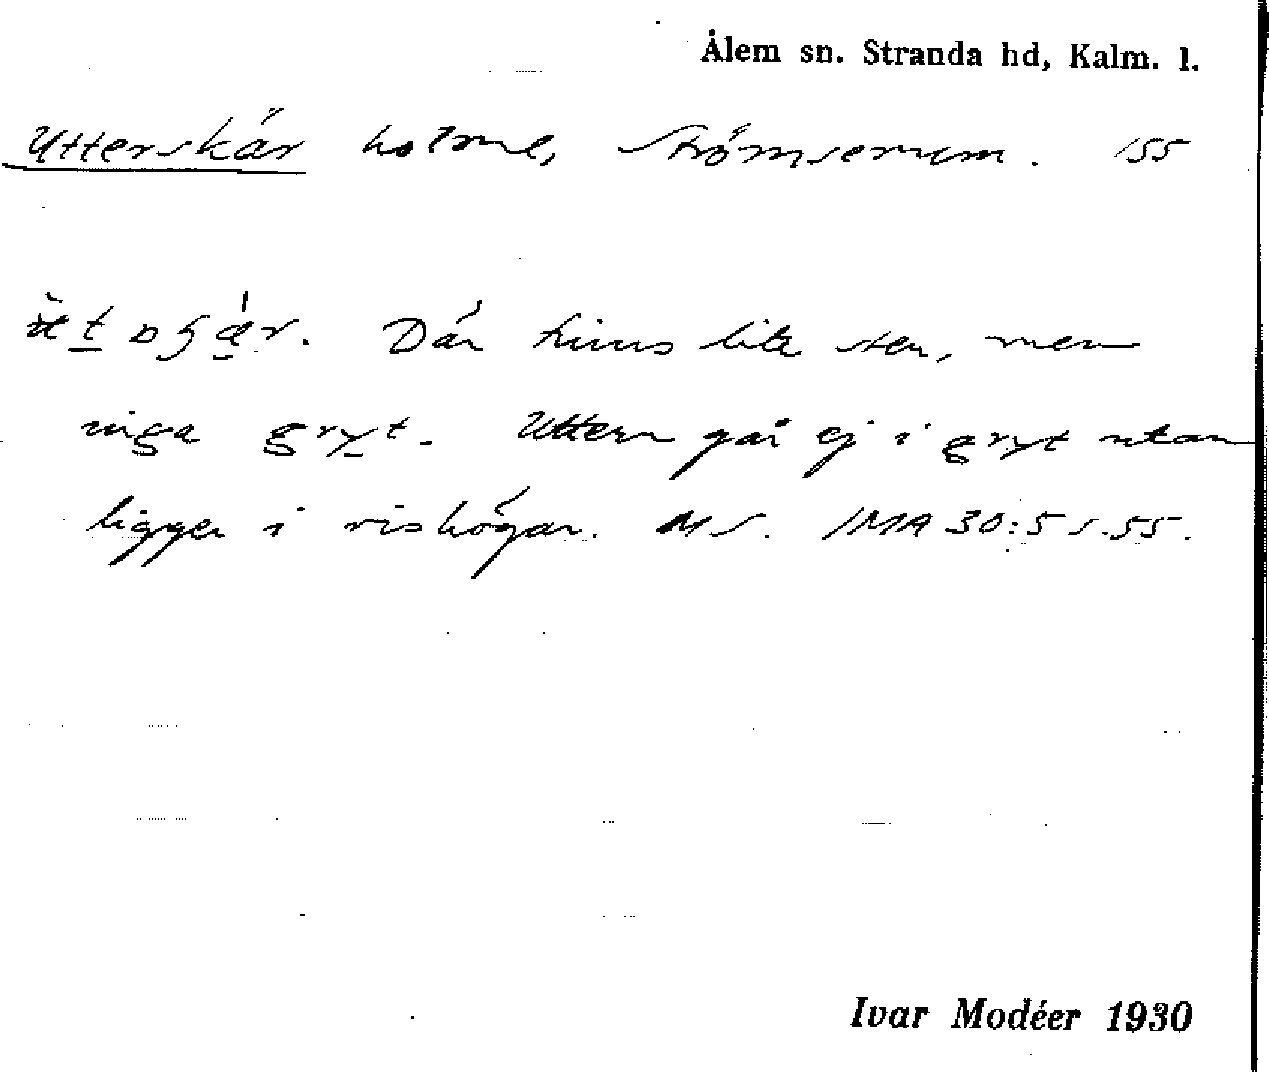 Ålem sn. Stranda hd, Kalm. l.
Utterskär holme, Strömserum. 155
Där finns lite sten, men
inga gryt. Uttern går ej i gryt utan
ligger i rishögar. MS. IMA 30:5 s.55.
Ivar Modéer 1930